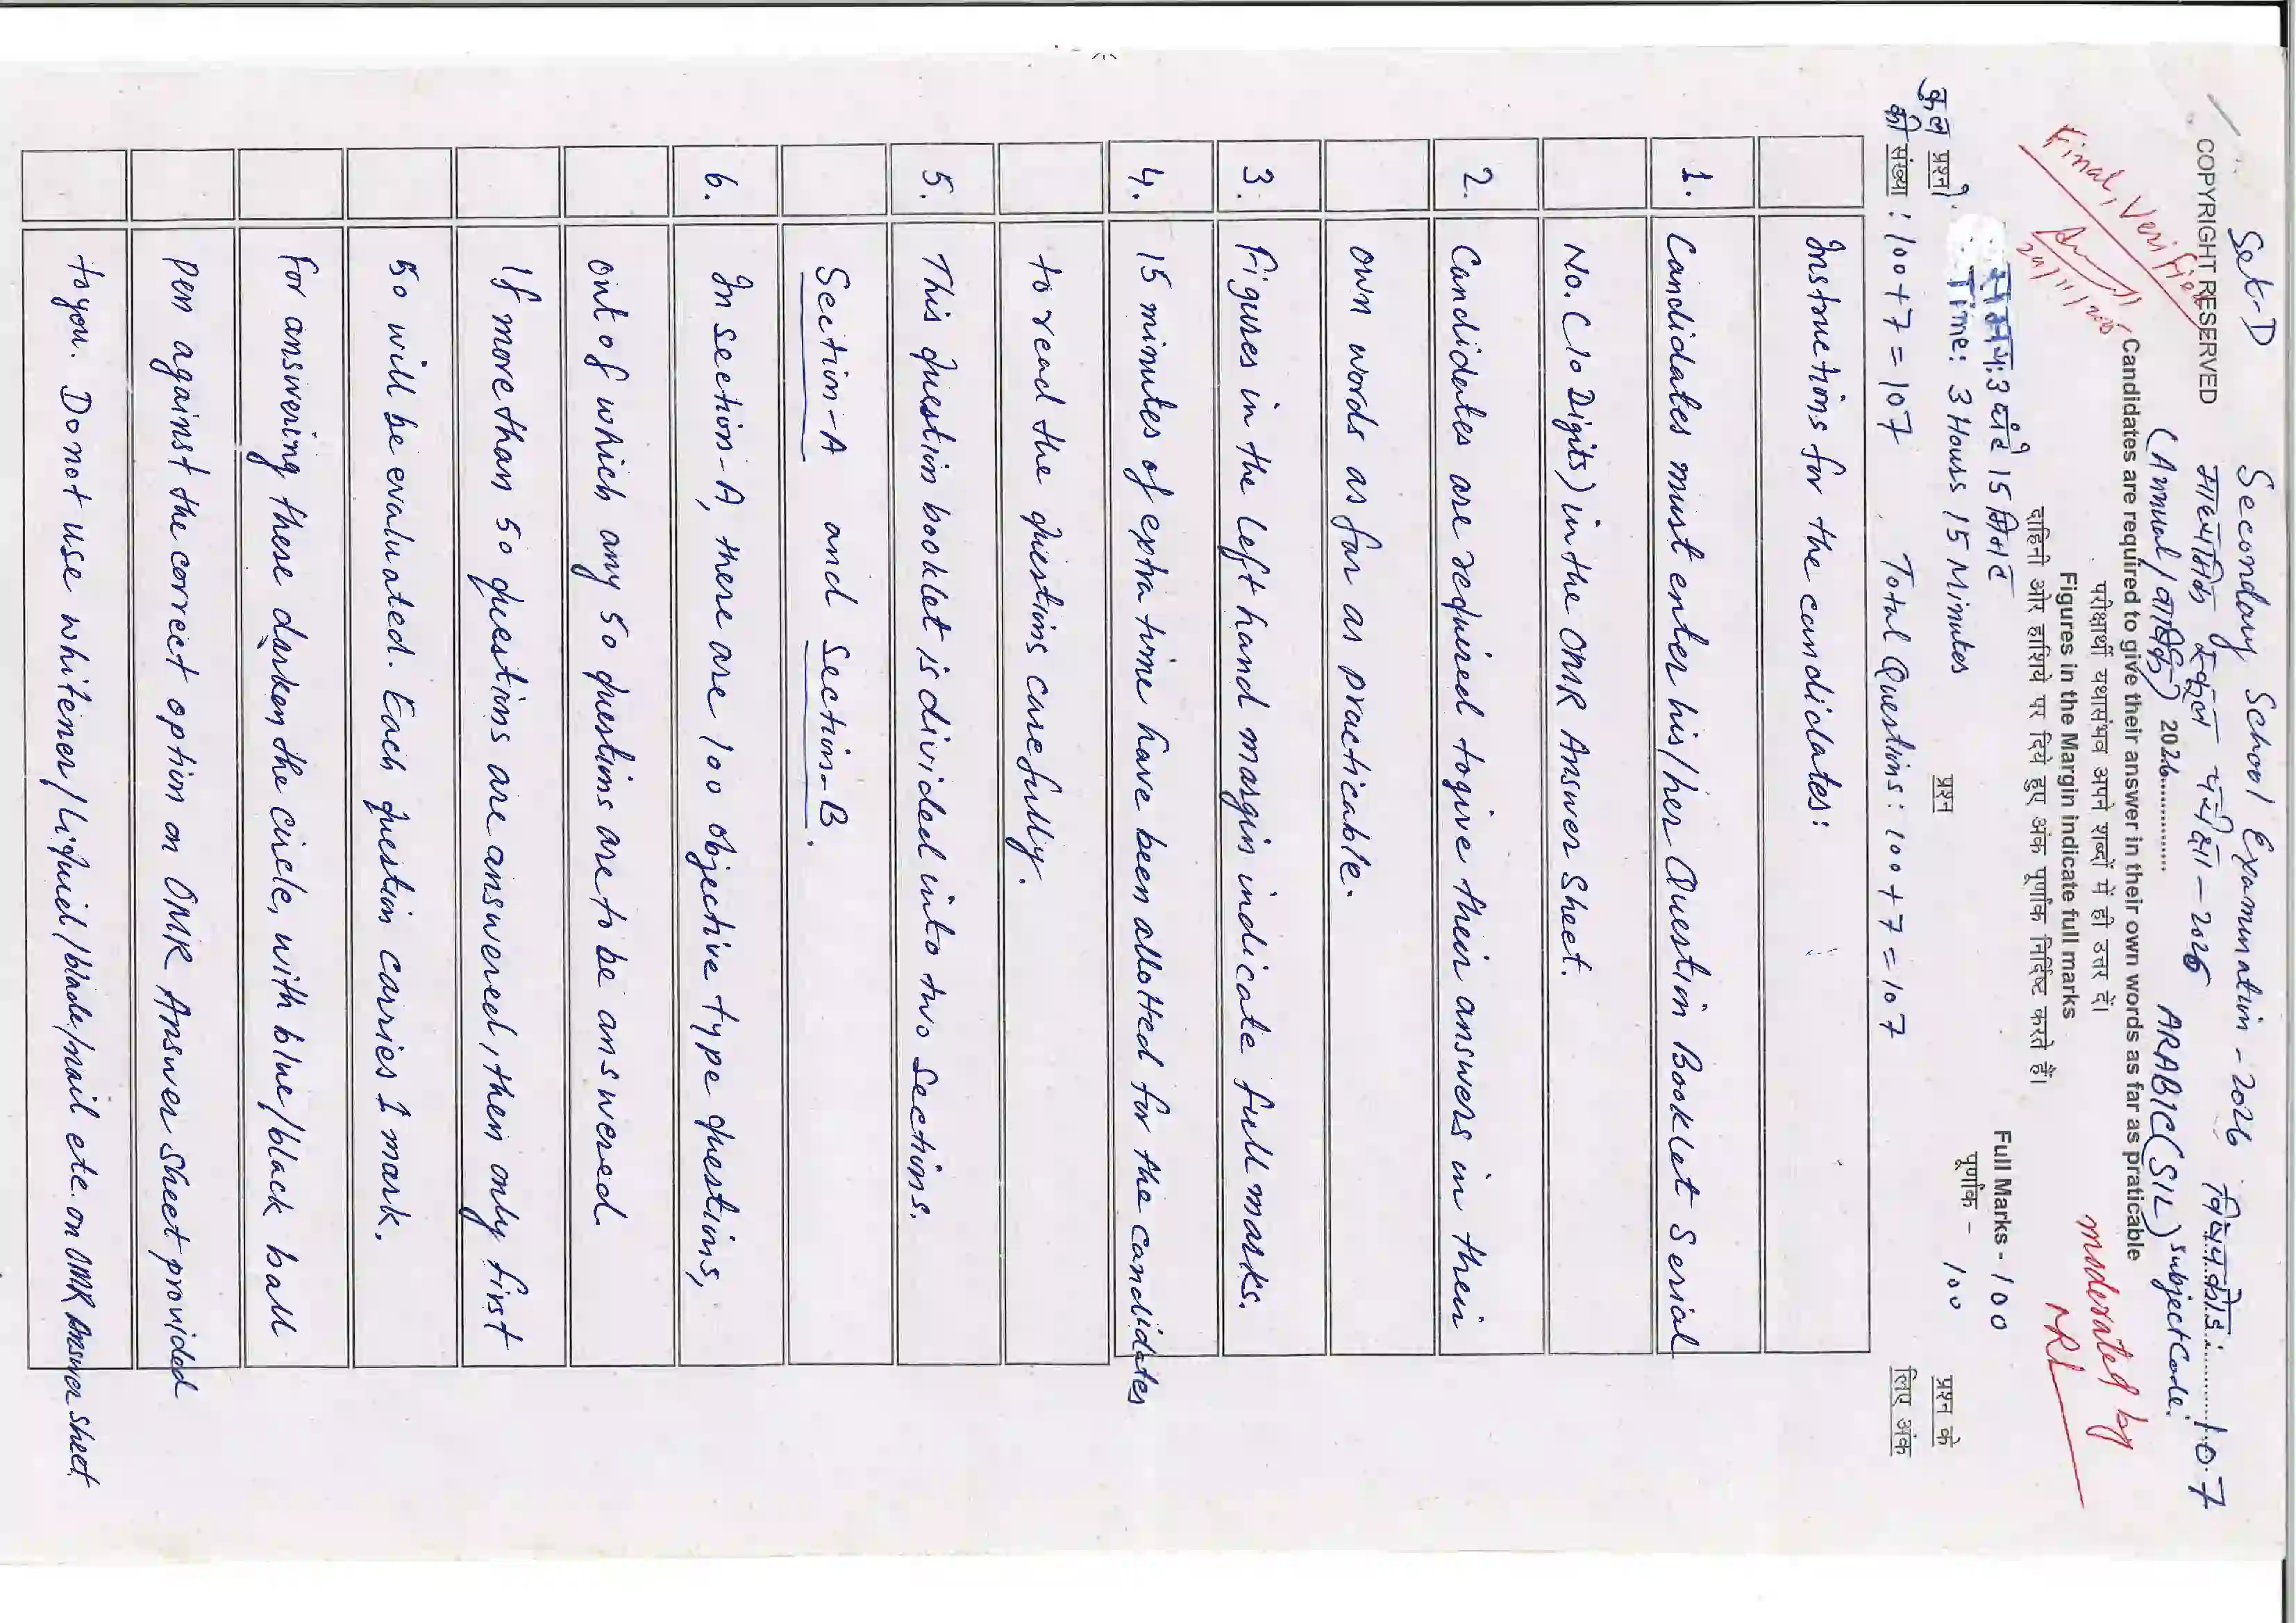 Set-D Secondary School Examination - 2026 विषय कोड:............107
COPYRIGHT RESERVED माध्यमिक स्कूल परीक्षा - 2026 Subject Code:
(Annual / वार्षिक) 2026............... ARABIC (SIL)
Final, Verified
20/11/2025
Candidates are required to give their answer in their own words as far as praticable
परीक्षार्थी यथासंभव अपने शब्दों में ही उत्तर दें।
Figures in the Margin indicate full marks
दाहिनी ओर हाशिये पर दिये हुए अंक पूर्णांक निर्दिष्ट करते हैं।
moderated by
समय: 3 घंटे 15 मिनट Full Marks - 100
Time: 3 Hours 15 Minutes पूर्णांक - 100
कुल प्रश्नों प्रश्न प्रश्न के
की संख्या : 100 + 7 = 107 Total Questions : 100 + 7 = 107 लिए अंक
Instructions for the candidates:
1. Candidates must enter his/her Question Booklet Serial
No. (10 Digits) in the OMR Answer Sheet.
2. Candidates are required to give their answers in their
own words as far as practicable.
3. Figures in the left hand margin indicate full marks.
4. 15 minutes of extra time have been allotted for the candidates
to read the questions carefully.
5. This question booklet is divided into two sections.
Section-A and Section-B.
6. In section-A, there are 100 objective type questions,
out of which any 50 questions are to be answered.
If more than 50 questions are answered, then only first
50 will be evaluated. Each question carries 1 mark.
For answering these darken the circle, with blue/black ball
pen against the correct option on OMR Answer Sheet provided
to you. Do not use whitener/Liquid/blade/nail etc. on OMR Answer Sheet